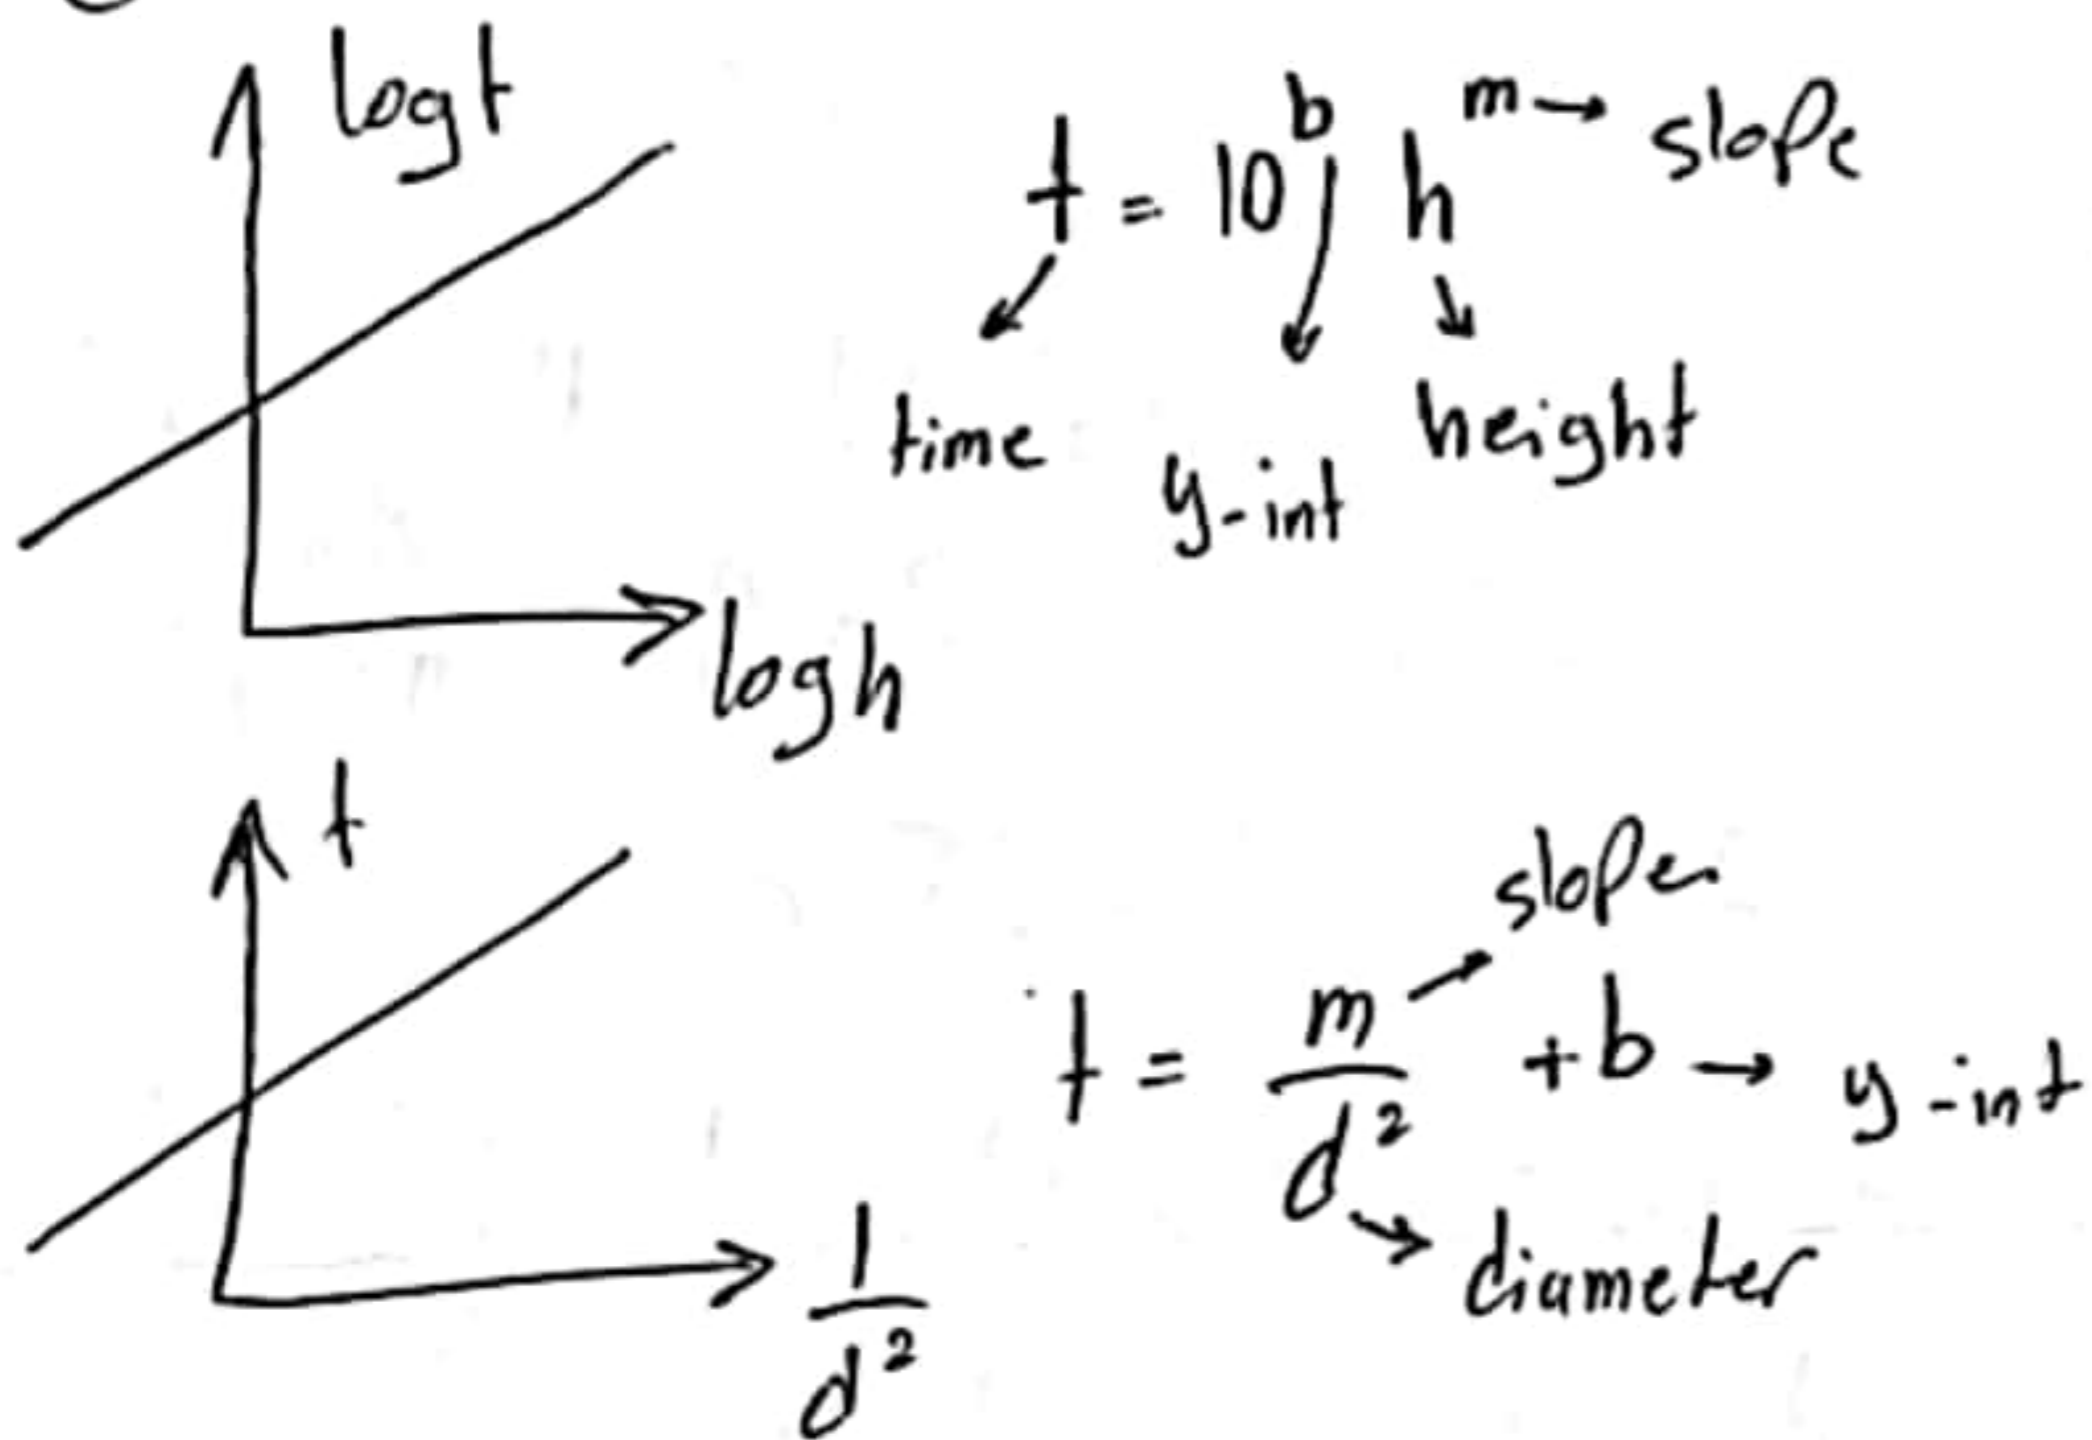 log t
t = 10^b h^m → slope
time
y-int
height
log h
t
slope
t = m/d² + b → y-int
diameter
1/d²